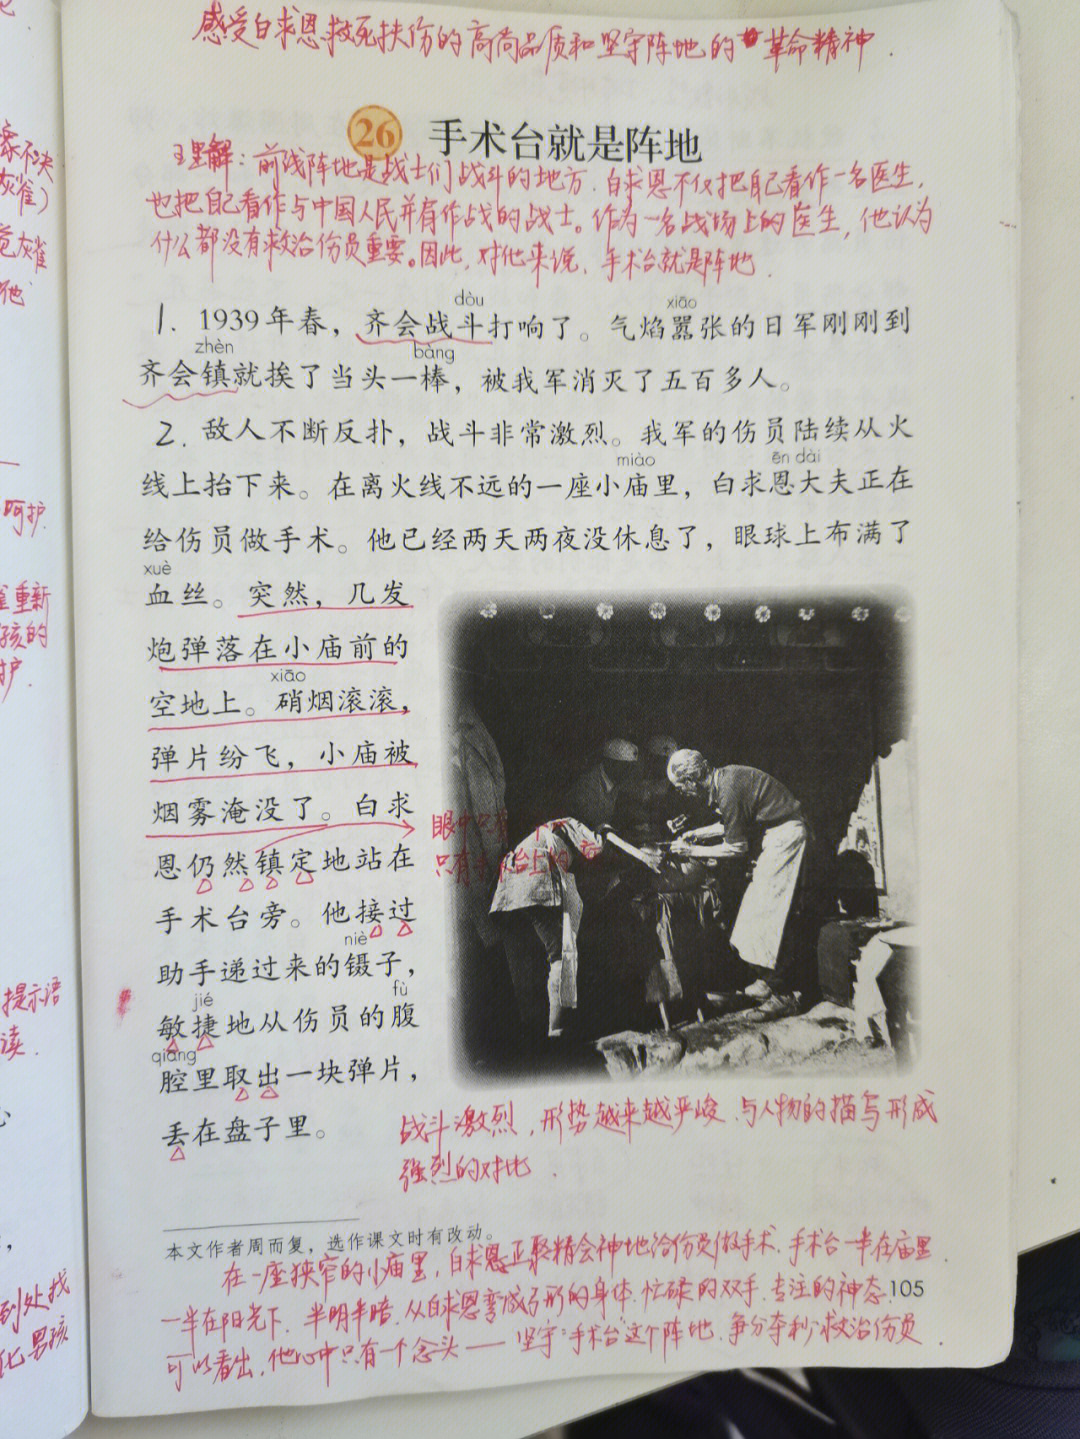 感受白求恩救死扶伤的高尚品质和坚守阵地的革命精神.
26 手术台就是阵地
理解：前线阵地是战士们战斗的地方.白求恩不仅把自己看作一名医生,
也把自己看作与中国人民并肩作战的战士。作为一名战场上的医生,他认为
什么都没有救治伤员重要。因此,对他来说,手术台就是阵地.
dòu xiāo
1. 1939年春，齐会战斗打响了。气焰嚣张的日军刚刚到
zhèn bàng
齐会镇就挨了当头一棒，被我军消灭了五百多人。
2. 敌人不断反扑，战斗非常激烈。我军的伤员陆续从火
miào ēn dài
线上抬下来。在离火线不远的一座小庙里，白求恩大夫正在
给伤员做手术。他已经两天两夜没休息了，眼球上布满了
xuè
血丝。突然，几发
炮弹落在小庙前的
xiāo
空地上。硝烟滚滚，
弹片纷飞，小庙被
烟雾淹没了。白求
眼中只
恩仍然镇定地站在
只有手术台上的
手术台旁。他接过
niè
助手递过来的镊子，
jié fù
敏捷地从伤员的腹
qiāng
腔里取出一块弹片，
丢在盘子里。
战斗激烈,形势越来越严峻.与人物的描写形成
强烈的对比.
本文作者周而复，选作课文时有改动。
在一座狭窄的小庙里,白求恩正聚精会神地给伤员做手术.手术台一半在庙里
一半在阳光下.半明半暗.从白求恩弯成弓形的身体.忙碌的双手.专注的神态.
105
可以看出,他心中只有一个念头——坚守"手术台"这个阵地.争分夺秒救治伤员
家不决
灰雀)
灰雀
他
呵护.
重新
孩的
护.
提示语
读.
到处找
男孩